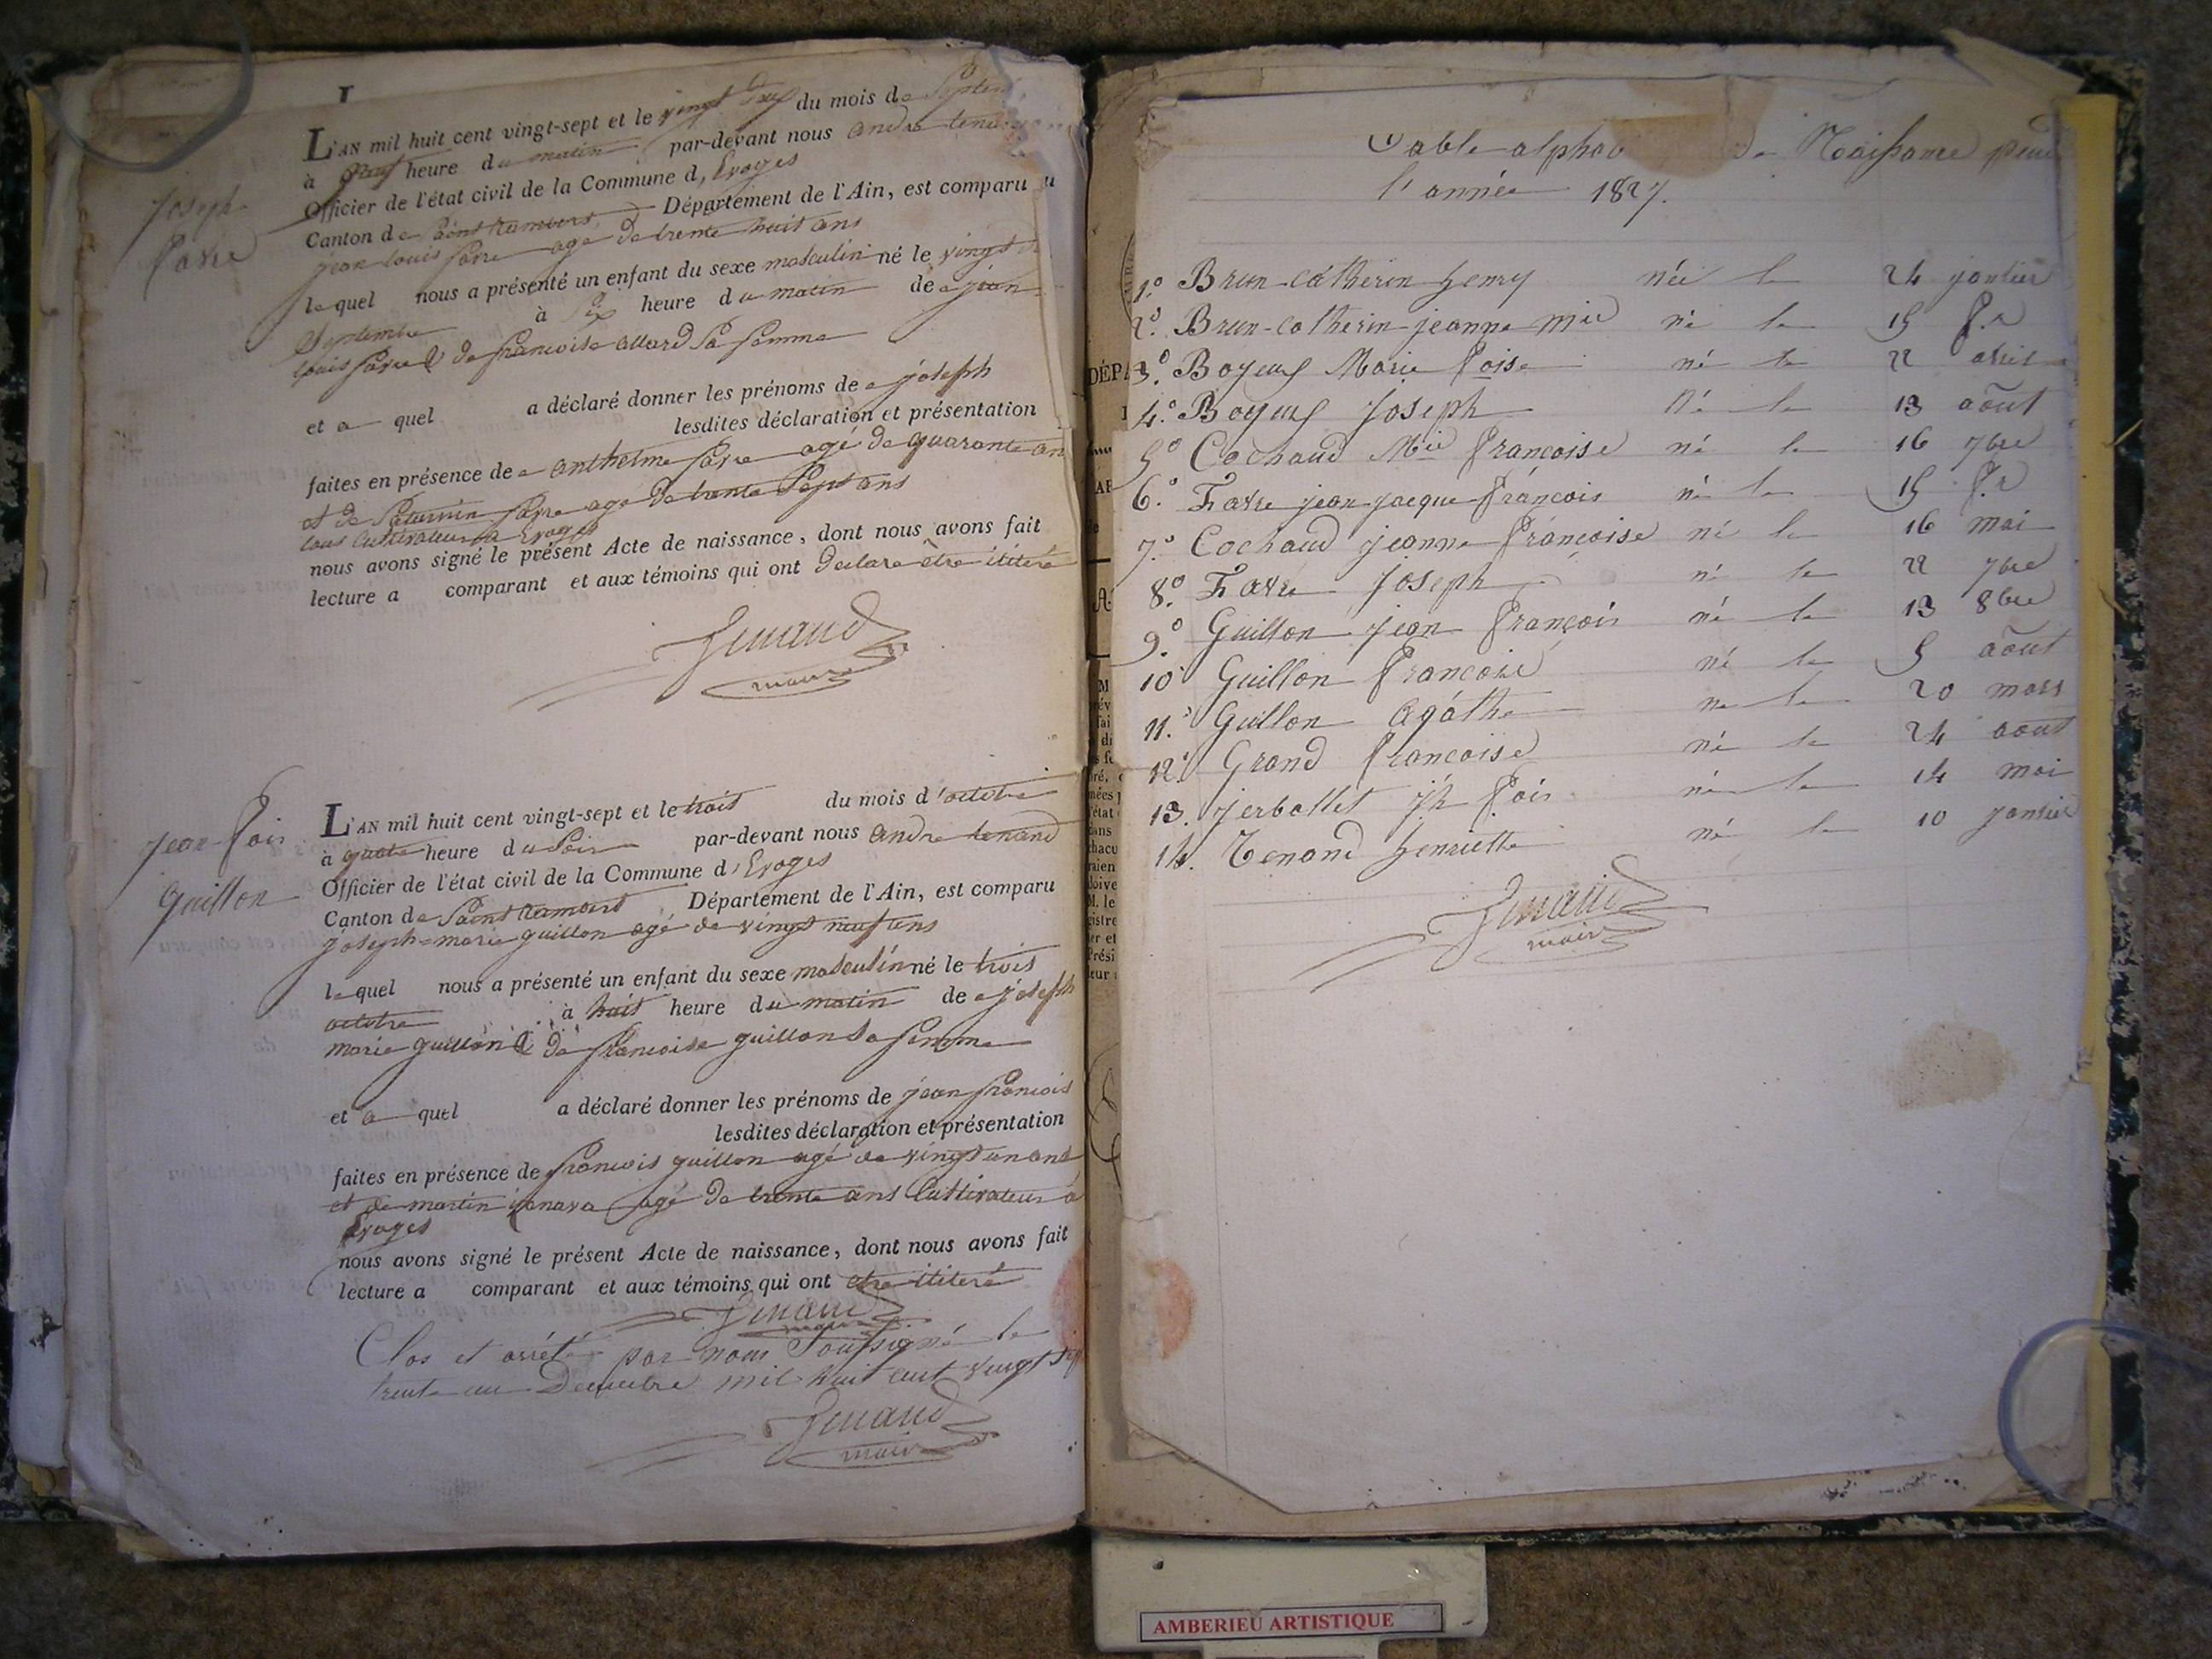 Joseph
Favre
L'AN mil huit cent vingt-sept et le vingt deux du mois de Septem
à neuf heure du matin par-devant nous andre tenand
Officier de l'état civil de la Commune d'Evoges
Canton de Saint Rambert Département de l'Ain, est comparu
jean louis favre age de trente huit ans
lequel nous a présenté un enfant du sexe masculin né le vingt
Septembre à Six heure du matin de jean
louis favre & de francoise allard Sa femme
et a quel a déclaré donner les prénoms de joseph
lesdites déclaration et présentation
faites en présence de anthelme favre agé de quarante an
et de Saturnin favre age de trente Sept ans
tous Cultivateur a Evoges
nous avons signé le présent Acte de naissance, dont nous avons fait
lecture a comparant et aux témoins qui ont declare être ilitere
Tenand
maire
Jean fois
Guillon
L'AN mil huit cent vingt-sept et le trois du mois d'octobre
à quatre heure du Soir par-devant nous andre tenand
Officier de l'état civil de la Commune d'Evoges
Canton de Saint Rambert Département de l'Ain, est comparu
joseph-marie guillon agé de vingt neuf ans
lequel nous a présenté un enfant du sexe masculin né le trois
octobre à huit heure du matin de joseph
marie guillon & de francoise guillon Sa femme
et a quel a déclaré donner les prénoms de jean francois
lesdites déclaration et présentation
faites en présence de francois guillon agé de vingt un ans
et de martin agé de trente ans Cultivateur a
Evoges
nous avons signé le présent Acte de naissance, dont nous avons fait
lecture a comparant et aux témoins qui ont etre ilitere
Tenand
maire
Clos et arrété par nous Soussigné le
trente un Decembre mil huit cent vingt sep
Tenand
maire
Table alphab de Naissance pour
l'année 1827.
1.º Brun-Catherin henry née le 24 janvier
2.º Brun-Catherin jeanne Mie né le 15 f.r
3.º Boyeux Marie foise né le 22 avril
4.º Boyeux Joseph né le 13 août
5º Cochaud Mie françoise né le 16 7bre
6.º Favre jean-jacque françois né le 15 f.r
7.º Cochaud jeanne françoise né le 16 mai
8.º Favre Joseph né le 22 7bre
9.º Guillon Jean François né le 13 8bre
10 Guillon françoise né le 5 août
11. Guillon agáthe ne le 20 mars
12. Grand françoise né le 24 aout
13. Jerbollet Jh fois né le 14 mai
14. Tenand henriette né le 10 janvier
Tenand
maire
AMBERIEU ARTISTIQUE